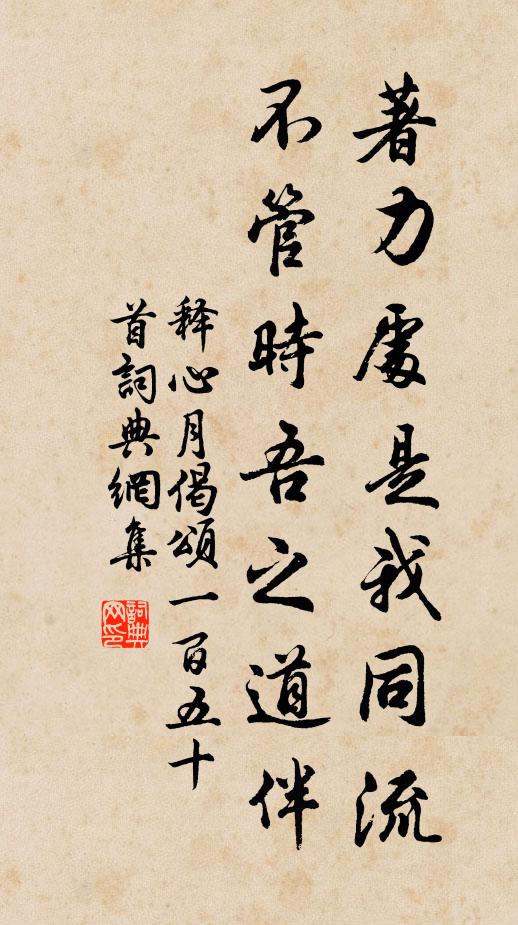 著力處是我同流
不管時吾之道伴
释心月偈頌一百五十
首詞典網集
詞典网印